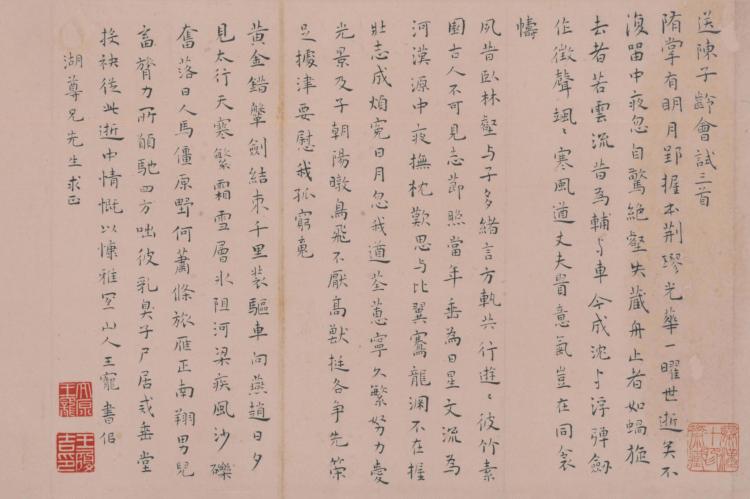 送陳子齡會試三首
隋掌有明月郢握本荆璆光華一曜世逝矣不
復留中夜忽自驚絶壑失藏舟止者如蝸施
去者若雲流昔為輔與車今成沈與浮彈劔
作徵聲颯〻寒風遒丈夫貴意氣豈在同衾
幬
夙昔卧林壑与子多緒言方軌共行遊〻彼竹素
園古人不可見志節照當年垂為日星文流為
河漢源中夜撫枕歎思与比翼騫龍淵不在握
壯志成煩寃日月忽我遒荃蕙寧久繁努力愛
光景及子朝陽暾鳥飛不厭高獸挺各争先策
足據津要慰我孤窮䰟
黃金錯鞶劍結束千里裝驅車向燕趙日夕
見太行天寒繁霜雪層氷阻河梁疾風沙礫
奮落日人馬僵原野何蕭條旅雁正南翔男兒
富膂力所願馳四方咄彼乳臭子尸居或垂堂
挨袂從此逝中情慨以慷雅宜山人王寵書侣
湖尊兄先生求正
王寵